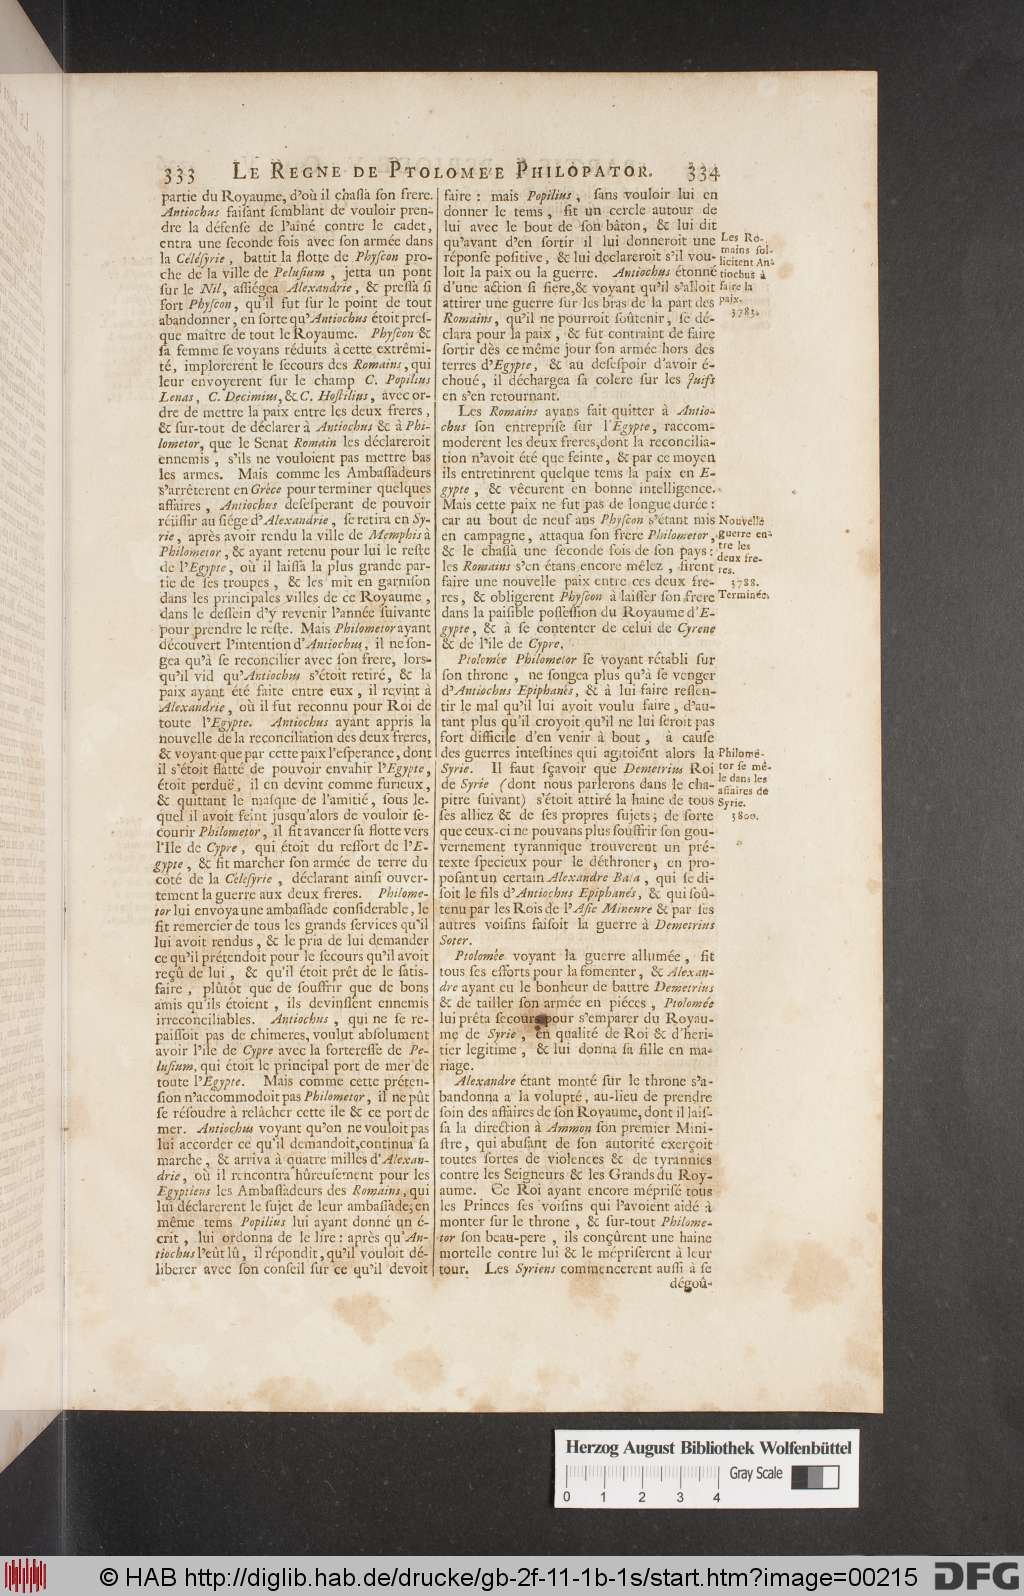 333 LE REGNE DE PTOLOME'E PHILOPATOR. 334
partie du Royaume, d'où il chaſſa ſon frere.
Antiochus faiſant ſemblant de vouloir pren-
dre la défenſe de l'aîné contre le cadet,
entra une ſeconde fois avec ſon armée dans
la Céléſyrie, battit la flotte de Phyſcon pro-
che de la ville de Peluſium, jetta un pont
ſur le Nil, aſſiégea Alexandrie, & preſſa ſi
fort Phyſcon, qu'il fut ſur le point de tout
abandonner, en ſorte qu'Antiochus étoit preſ-
que maître de tout le Royaume. Phyſcon &
ſa femme ſe voyans réduits à cette extrêmi-
té, implorerent le ſecours des Romains, qui
leur envoyerent ſur le champ C. Popilius
Lenas, C. Decimius, & C. Hoſtilius, avec or-
dre de mettre la paix entre les deux freres,
& ſur-tout de déclarer à Antiochus & à Phi-
lometor, que le Senat Romain les déclareroit
ennemis, s'ils ne vouloient pas mettre bas
les armes. Mais comme les Ambaſſadeurs
s'arrêterent en Gréce pour terminer quelques
affaires, Antiochus deſeſperant de pouvoir
réüſſir au ſiége d'Alexandrie, ſe retira en Sy-
rie, après avoir rendu la ville de Memphis à
Philometor, & ayant retenu pour lui le reſte
de l'Egypte, où il laiſſa la plus grande par-
tie de ſes troupes, & les mit en garniſon
dans les principales villes de ce Royaume,
dans le deſſein d'y revenir l'année ſuivante
pour prendre le reſte. Mais Philometor ayant
découvert l'intention d'Antiochus, il ne ſon-
gea qu'à ſe reconcilier avec ſon frere, lors-
qu'il vid qu'Antiochus s'étoit retiré, & la
paix ayant été faite entre eux, il revint à
Alexandrie, où il fut reconnu pour Roi de
toute l'Egypte. Antiochus ayant appris la
nouvelle de la reconciliation des deux freres,
& voyant que par cette paix l'eſperance, dont
il s'étoit flatté de pouvoir envahir l'Egypte,
étoit perduë, il en devint comme furieux,
& quittant le maſque de l'amitié, ſous le-
quel il avoit feint jusqu'alors de vouloir ſe-
courir Philometor, il fit avancer ſa flotte vers
l'Ile de Cypre, qui étoit du reſſort de l'E-
gypte, & fit marcher ſon armée de terre du
côté de la Céléſyrie, déclarant ainſi ouver-
tement la guerre aux deux freres. Philome-
tor lui envoya une ambaſſade conſiderable, le
fit remercier de tous les grands ſervices qu'il
lui avoit rendus, & le pria de lui demander
ce qu'il prétendoit pour le ſecours qu'il avoit
reçû de lui, & qu'il étoit prêt de le ſatis-
faire, plûtôt que de ſouffrir que de bons
amis qu'ils étoient, ils devinſſent ennemis
irreconciliables. Antiochus, qui ne ſe re-
paiſſoit pas de chimeres, voulut abſolument
avoir l'ile de Cypre avec la fortereſſe de Pe-
luſium, qui étoit le principal port de mer de
toute l'Egypte. Mais comme cette préten-
ſion n'accommodoit pas Philometor, il ne pût
ſe réſoudre à relâcher cette ile & ce port de
mer. Antiochus voyant qu'on ne vouloit pas
lui accorder ce qu'il demandoit, continua ſa
marche, & arriva à quatre milles d'Alexan-
drie, où il rencontra hûreuſement pour les
Egyptiens les Ambaſſadeurs des Romains, qui
lui déclarerent le ſujet de leur ambaſſade; en
même tems Popilius lui ayant donné un é-
crit, lui ordonna de le lire: après qu'An-
tiochus l'eût lû, il répondit, qu'il vouloit dé-
liberer avec ſon conſeil ſur ce qu'il devoit
faire: mais Popilius, ſans vouloir lui en
donner le tems, fit un cercle autour de
lui avec le bout de ſon bâton, & lui dit
qu'avant d'en ſortir il lui donneroit une
réponſe poſitive, & lui declareroit s'il vou-
loit la paix ou la guerre. Antiochus étonné
d'une action ſi fiere, & voyant qu'il s'alloit
attirer une guerre ſur les bras de la part des
Romains, qu'il ne pourroit ſoûtenir, ſe dé-
clara pour la paix, & fut contraint de faire
ſortir dès ce même jour ſon armée hors des
terres d'Egypte, & au deſeſpoir d'avoir é-
choué, il déchargea ſa colere ſur les Juifs
en s'en retournant.
Les Romains ayans fait quitter à Antio-
chus ſon entrepriſe ſur l'Egypte, raccom-
moderent les deux freres, dont la reconcilia-
tion n'avoit été que feinte, & par ce moyen
ils entretinrent quelque tems la paix en E-
gypte, & vêcurent en bonne intelligence.
Mais cette paix ne fut pas de longue durée:
car au bout de neuf ans Phyſcon s'étant mis
en campagne, attaqua ſon frere Philometor,
& le chaſſa une ſeconde fois de ſon pays:
les Romains s'en étans encore mêlez, firent
faire une nouvelle paix entre ces deux fre-
res, & obligerent Phyſcon à laiſſer ſon frere
dans la paiſible poſſeſſion du Royaume d'E-
gypte, & à ſe contenter de celui de Cyrene
& de l'ile de Cypre.
Ptolomée Philometor ſe voyant rétabli ſur
ſon throne, ne ſongea plus qu'à ſe venger
d'Antiochus Epiphanés, & à lui faire reſſen-
tir le mal qu'il lui avoit voulu faire, d'au-
tant plus qu'il croyoit qu'il ne lui ſeroit pas
fort difficile d'en venir à bout, à cauſe
des guerres inteſtines qui agitoient alors la
Syrie. Il faut ſçavoir que Demetrius Roi
de Syrie (dont nous parlerons dans le cha-
pitre ſuivant) s'étoit attiré la haine de tous
ſes alliez & de ſes propres ſujets; de ſorte
que ceux-ci ne pouvans plus ſouffrir ſon gou-
vernement tyrannique trouverent un pré-
texte ſpecieux pour le déthroner, en pro-
poſant un certain Alexandre Bala, qui ſe di-
ſoit le fils d'Antiochus Epiphanés, & qui ſoû-
tenu par les Rois de l'Aſie Mineure & par ſes
autres voiſins faiſoit la guerre à Demetrius
Soter.
Ptolomée voyant la guerre allumée, fit
tous ſes efforts pour la fomenter, & Alexan-
dre ayant eu le bonheur de battre Demetrius
& de tailler ſon armée en piéces, Ptolomée
lui prêta ſecours pour s'emparer du Royau-
me de Syrie, en qualité de Roi & d'heri-
tier legitime, & lui donna ſa fille en ma-
riage.
Alexandre étant monté ſur le throne s'a-
bandonna a la volupté, au-lieu de prendre
ſoin des affaires de ſon Royaume, dont il laiſ-
ſa la direction à Ammon ſon premier Mini-
ſtre, qui abuſant de ſon autorité exerçoit
toutes ſortes de violences & de tyrannies
contre les Seigneurs & les Grands du Roy-
aume. Ce Roi ayant encore mépriſé tous
les Princes ſes voiſins qui l'avoient aidé à
monter ſur le throne, & ſur-tout Philome-
tor ſon beau-pere, ils conçûrent une haine
mortelle contre lui & le mépriſerent à leur
tour. Les Syriens commencerent auſſi à ſe
dégoû-
Les Ro-
mains ſol-
licitent An-
tiochus à
faire la
paix.
3783.
Nouvelle
guerre en-
tre les
deux fre-
res.
3788.
Terminée.
Philome-
tor ſe mê-
le dans les
affaires de
Syrie.
3800.
Herzog August Bibliothek Wolfenbüttel
Gray Scale
0 1 2 3 4
© HAB http://diglib.hab.de/drucke/gb-2f-11-1b-1s/start.htm?image=00215
DFG